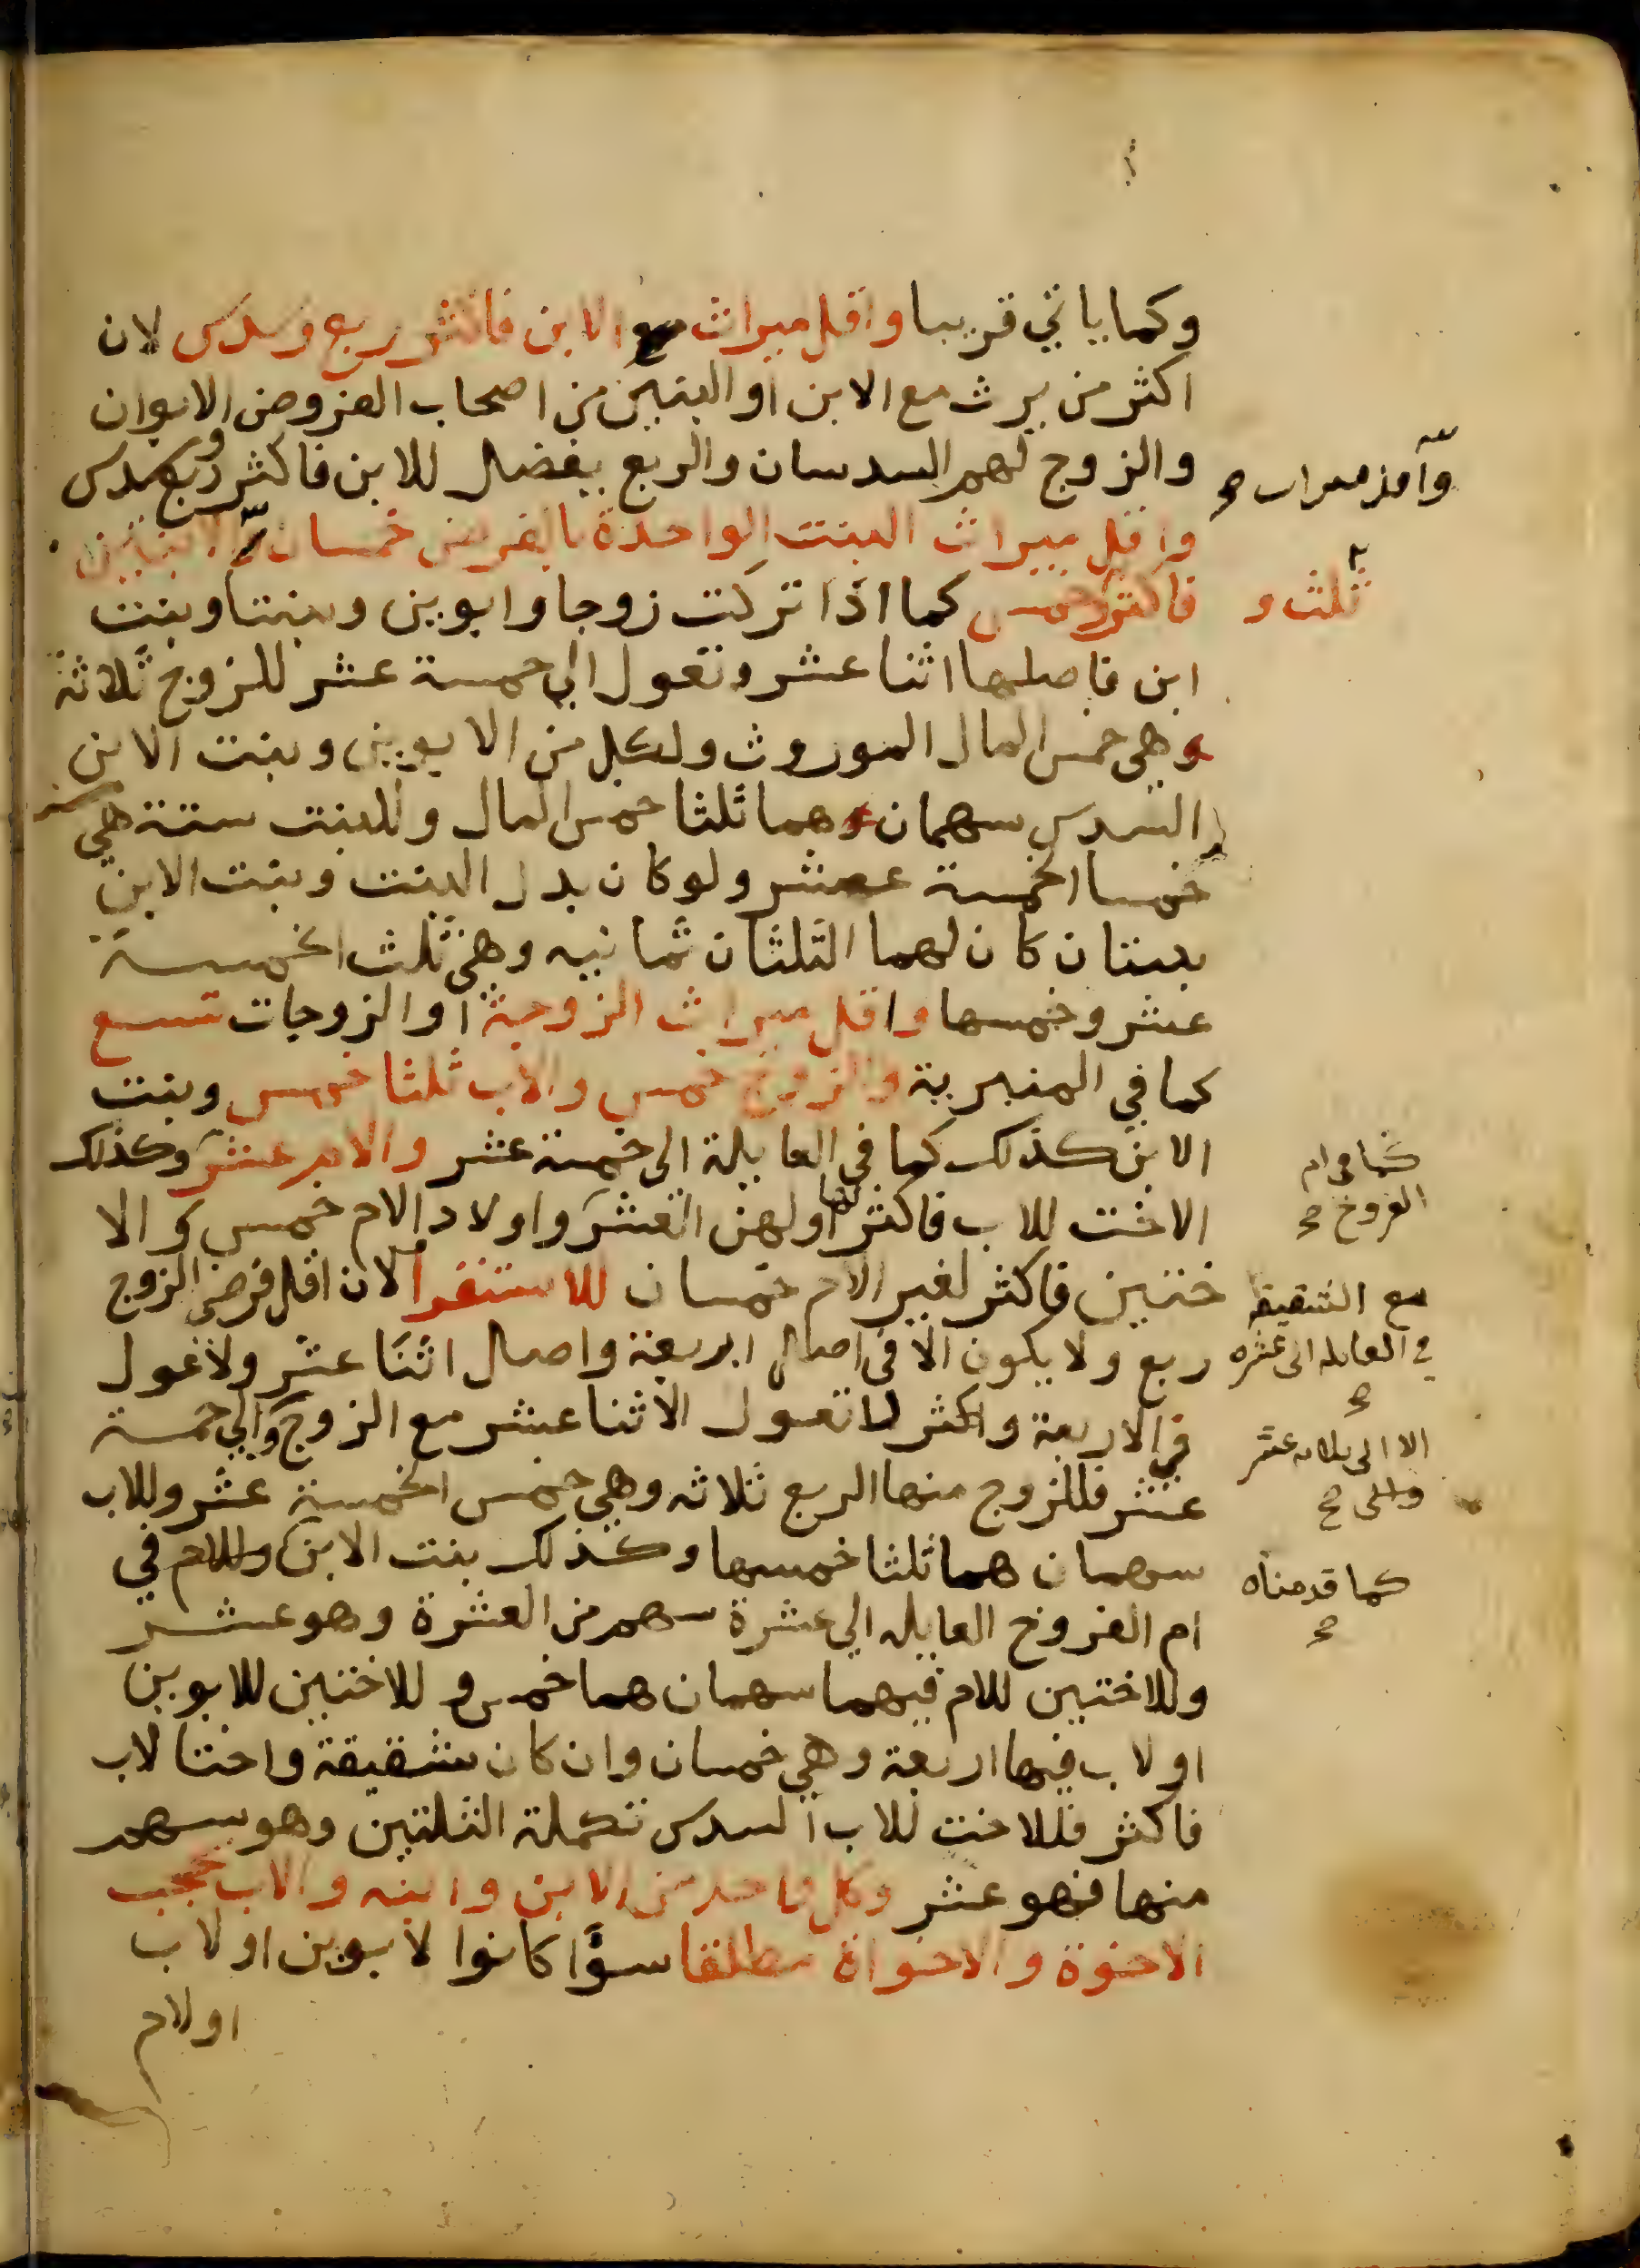 وكما ياتي قريبا واقل ميراث مع الابن فاكثر ربع وسدس لان
اكثر من يرث مع الابن او البنين من اصحاب الفروض الابوان
والزوج لهم السدسان والربع يفضل للابن فاكثر ربع وسدس
واقل ميراث البنت الواحدة بالفرض خمسان والابنتين
فاكثر خمس كما اذا تركت زوجا وابوين وبنتا وبنت
ثلث و
ابن فاصلها اثنا عشر وتعول الى خمسة عشر للزوج ثلاثة
وهي خمس المال الموروث ولكل من الابوين وبنت الابن
السدس سهمان وهما ثلثا خمس المال وللبنت ستة هي
خمسا الخمسة عشر ولو كان بدل البنت وبنت الابن
بنتان كان لهما الثلثان ثمانيه وهي ثلث الخمسة
عشر وخمسها واقل ميراث الزوجة او الزوجات تسع
كما في المنبرية والزوج خمس والاب ثلثا خمس وبنت
الابن كذلك كما في العايلة الى خمسة عشر والام عشر وكذلك
كما في ام
الفروخ صح
الاخت للاب فاكثر لها او لهن العشر واولاد الام خمس والا
ختين فاكثر لغير الام خمسان للاستقرا لان اقل فرض الزوج
مع الشقيقة
في العايله الى عشره
صح
ربع ولا يكون الا في اصل اربعة واصل اثنا عشر ولا عول
في الاربعة واكثر ما تعول الاثنا عشر مع الزوج والى خمسة
الا الى ثلاثه عشر
صح
عشر فللزوج منها الربع ثلاثه وهي خمس الخمسة عشر وللاب
سهمان هما ثلثا خمسها وكذلك بنت الابن وللام في
كما قدمناه
صح
ام الفروخ العايله الى عشرة سهم من العشرة وهو عشر
وللاختين للام فيهما سهمان هما خمس وللاختين للابوين
او لاب فيها اربعة وهي خمسان وان كان شقيقة واختا لاب
فاكثر فللاخت للاب السدس تكملة الثلثين وهو سهم
منها فهو عشر وكل واحد من الابن وابنه والاب يحجب
الاخوة والاخواة مطلقا سوا كانوا لابوين او لاب
او لام